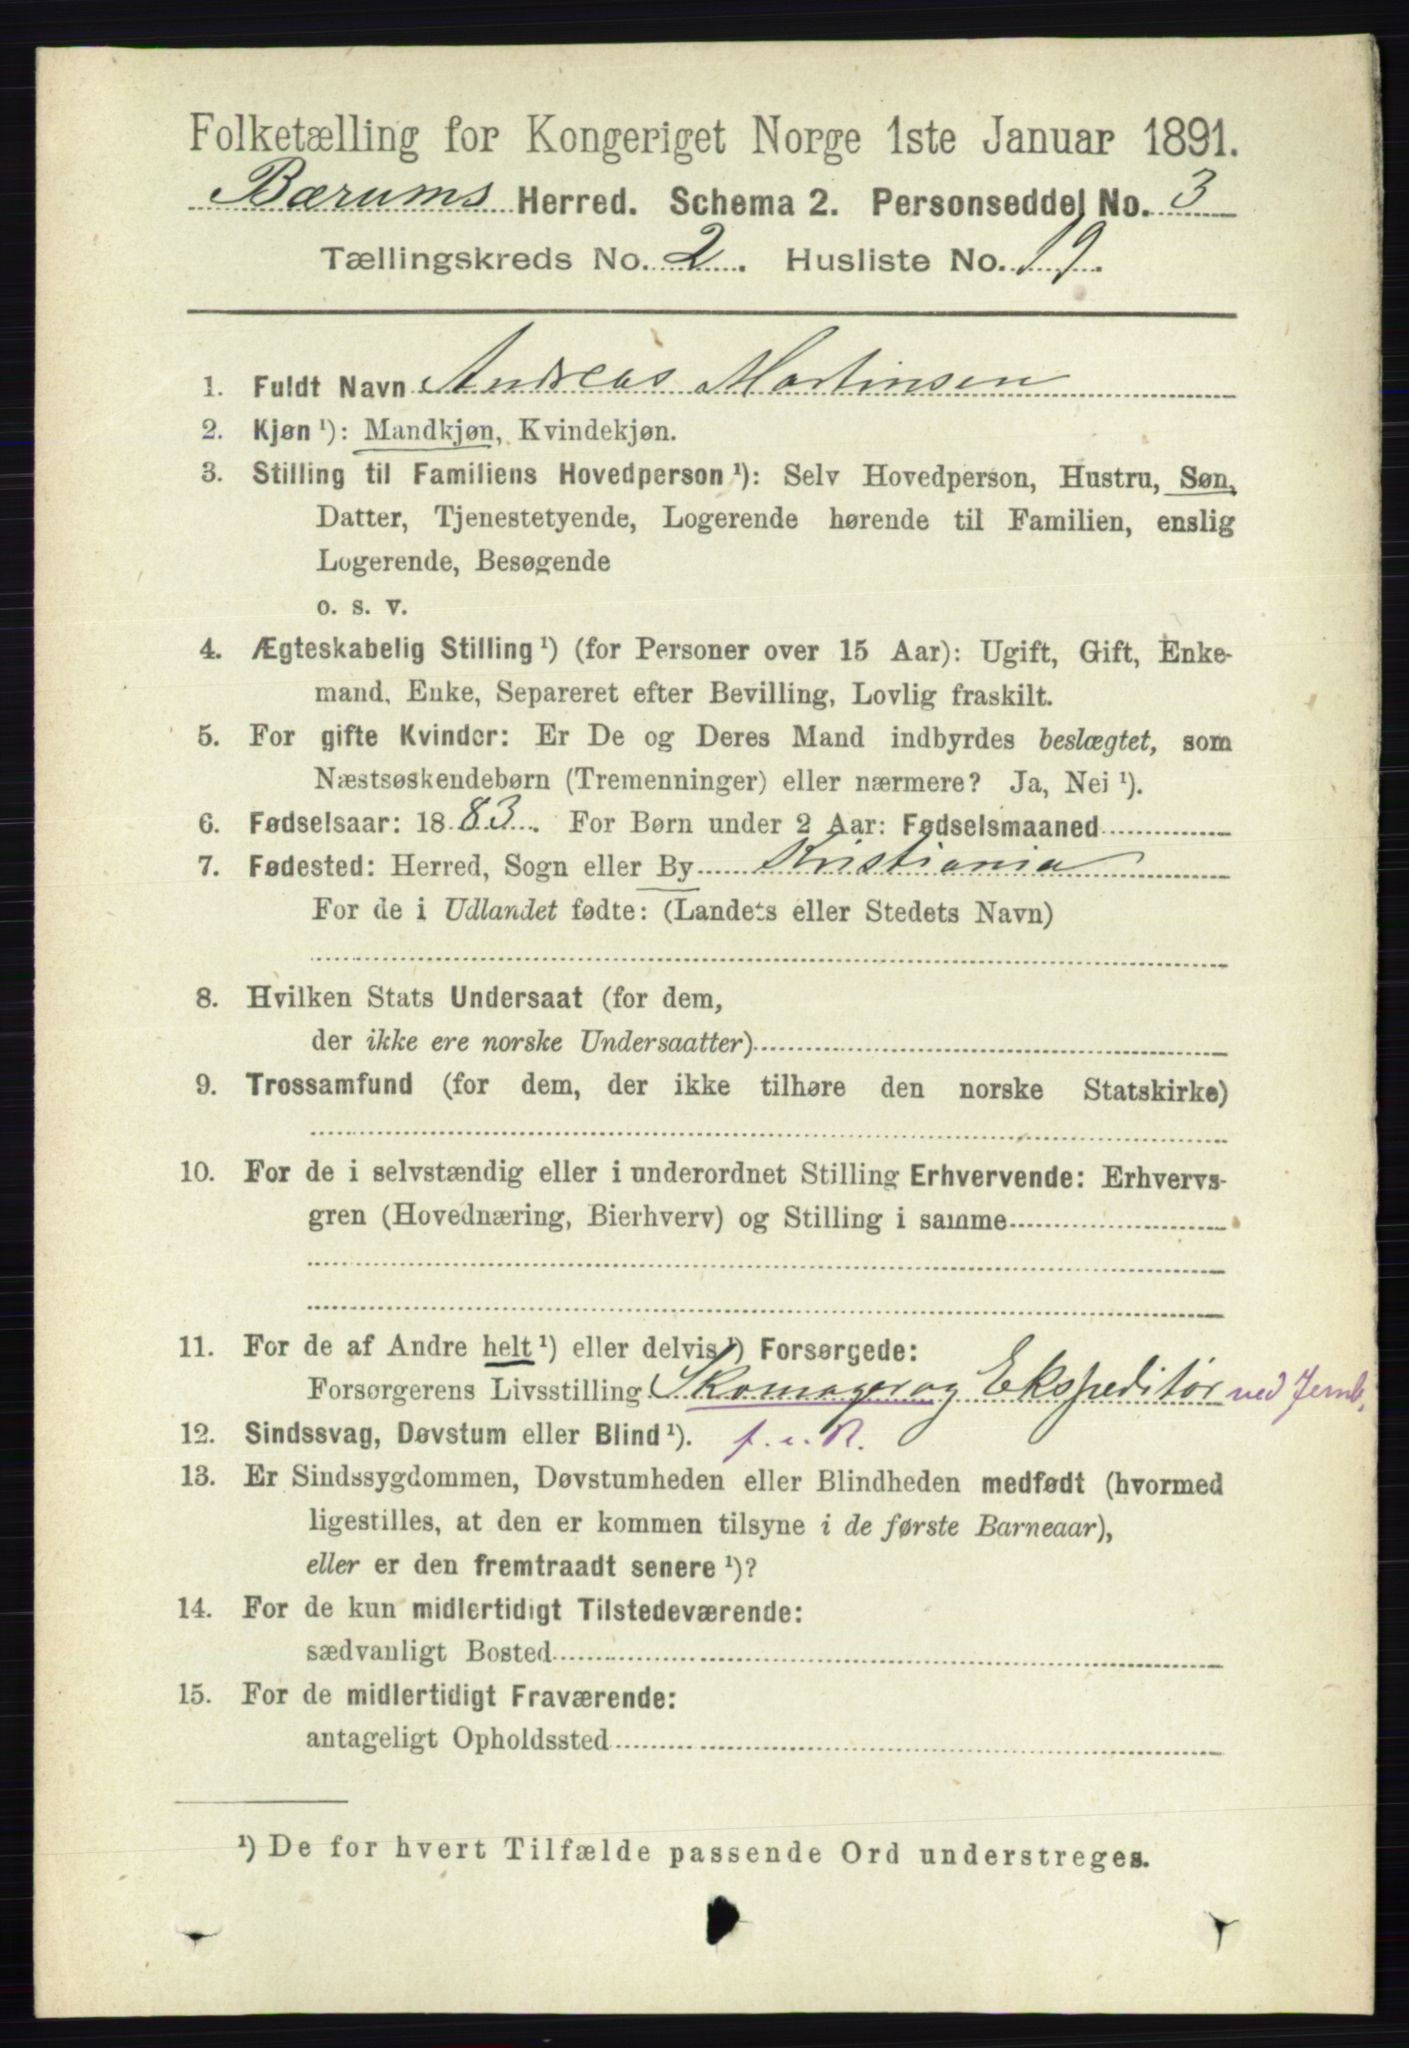 Folketælling for Kongeriget Norge 1ste Januar 1891.
Bærums Herred. Schema 2. Personseddel No. 3
Tællingskreds No. 2. Husliste No. 19.
1. Fuldt Navn Andreas Martinsen
2. Kjøn ¹): Mandkjøn, Kvindekjøn.
3. Stilling til Familiens Hovedperson ¹): Selv Hovedperson, Hustru, Søn,
Datter, Tjenestetyende, Logerende hørende til Familien, enslig
Logerende, Besøgende
o. s. v.
4. Ægteskabelig Stilling ¹) (for Personer over 15 Aar): Ugift, Gift, Enke-
mand, Enke, Separeret efter Bevilling, Lovlig fraskilt.
5. For gifte Kvinder: Er De og Deres Mand indbyrdes beslægtet, som
Næstsøskendebørn (Tremenninger) eller nærmere? Ja, Nei ¹).
6. Fødselsaar: 1883. For Børn under 2 Aar: Fødselsmaaned
7. Fødested: Herred, Sogn eller By Kristiania
For de i Udlandet fødte: (Landets eller Stedets Navn)
8. Hvilken Stats Undersaat (for dem,
der ikke ere norske Undersaatter)
9. Trossamfund (for dem, der ikke tilhøre den norske Statskirke)
10. For de i selvstændig eller i underordnet Stilling Erhvervende: Erhvervs-
gren (Hovednæring, Bierhverv) og Stilling i samme
11. For de af Andre helt ¹) eller delvis ¹) Forsørgede:
Forsørgerens Livsstilling Skomager og Ekspeditør ved Jernb.
12. Sindssvag, Døvstum eller Blind ¹). f. e. R.
13. Er Sindssygdommen, Døvstumheden eller Blindheden medfødt (hvormed
ligestilles, at den er kommen tilsyne i de første Barneaar),
eller er den fremtraadt senere ¹)?
14. For de kun midlertidigt Tilstedeværende:
sædvanligt Bosted
15. For de midlertidigt Fraværende:
antageligt Opholdssted
¹) De for hvert Tilfælde passende Ord understreges.